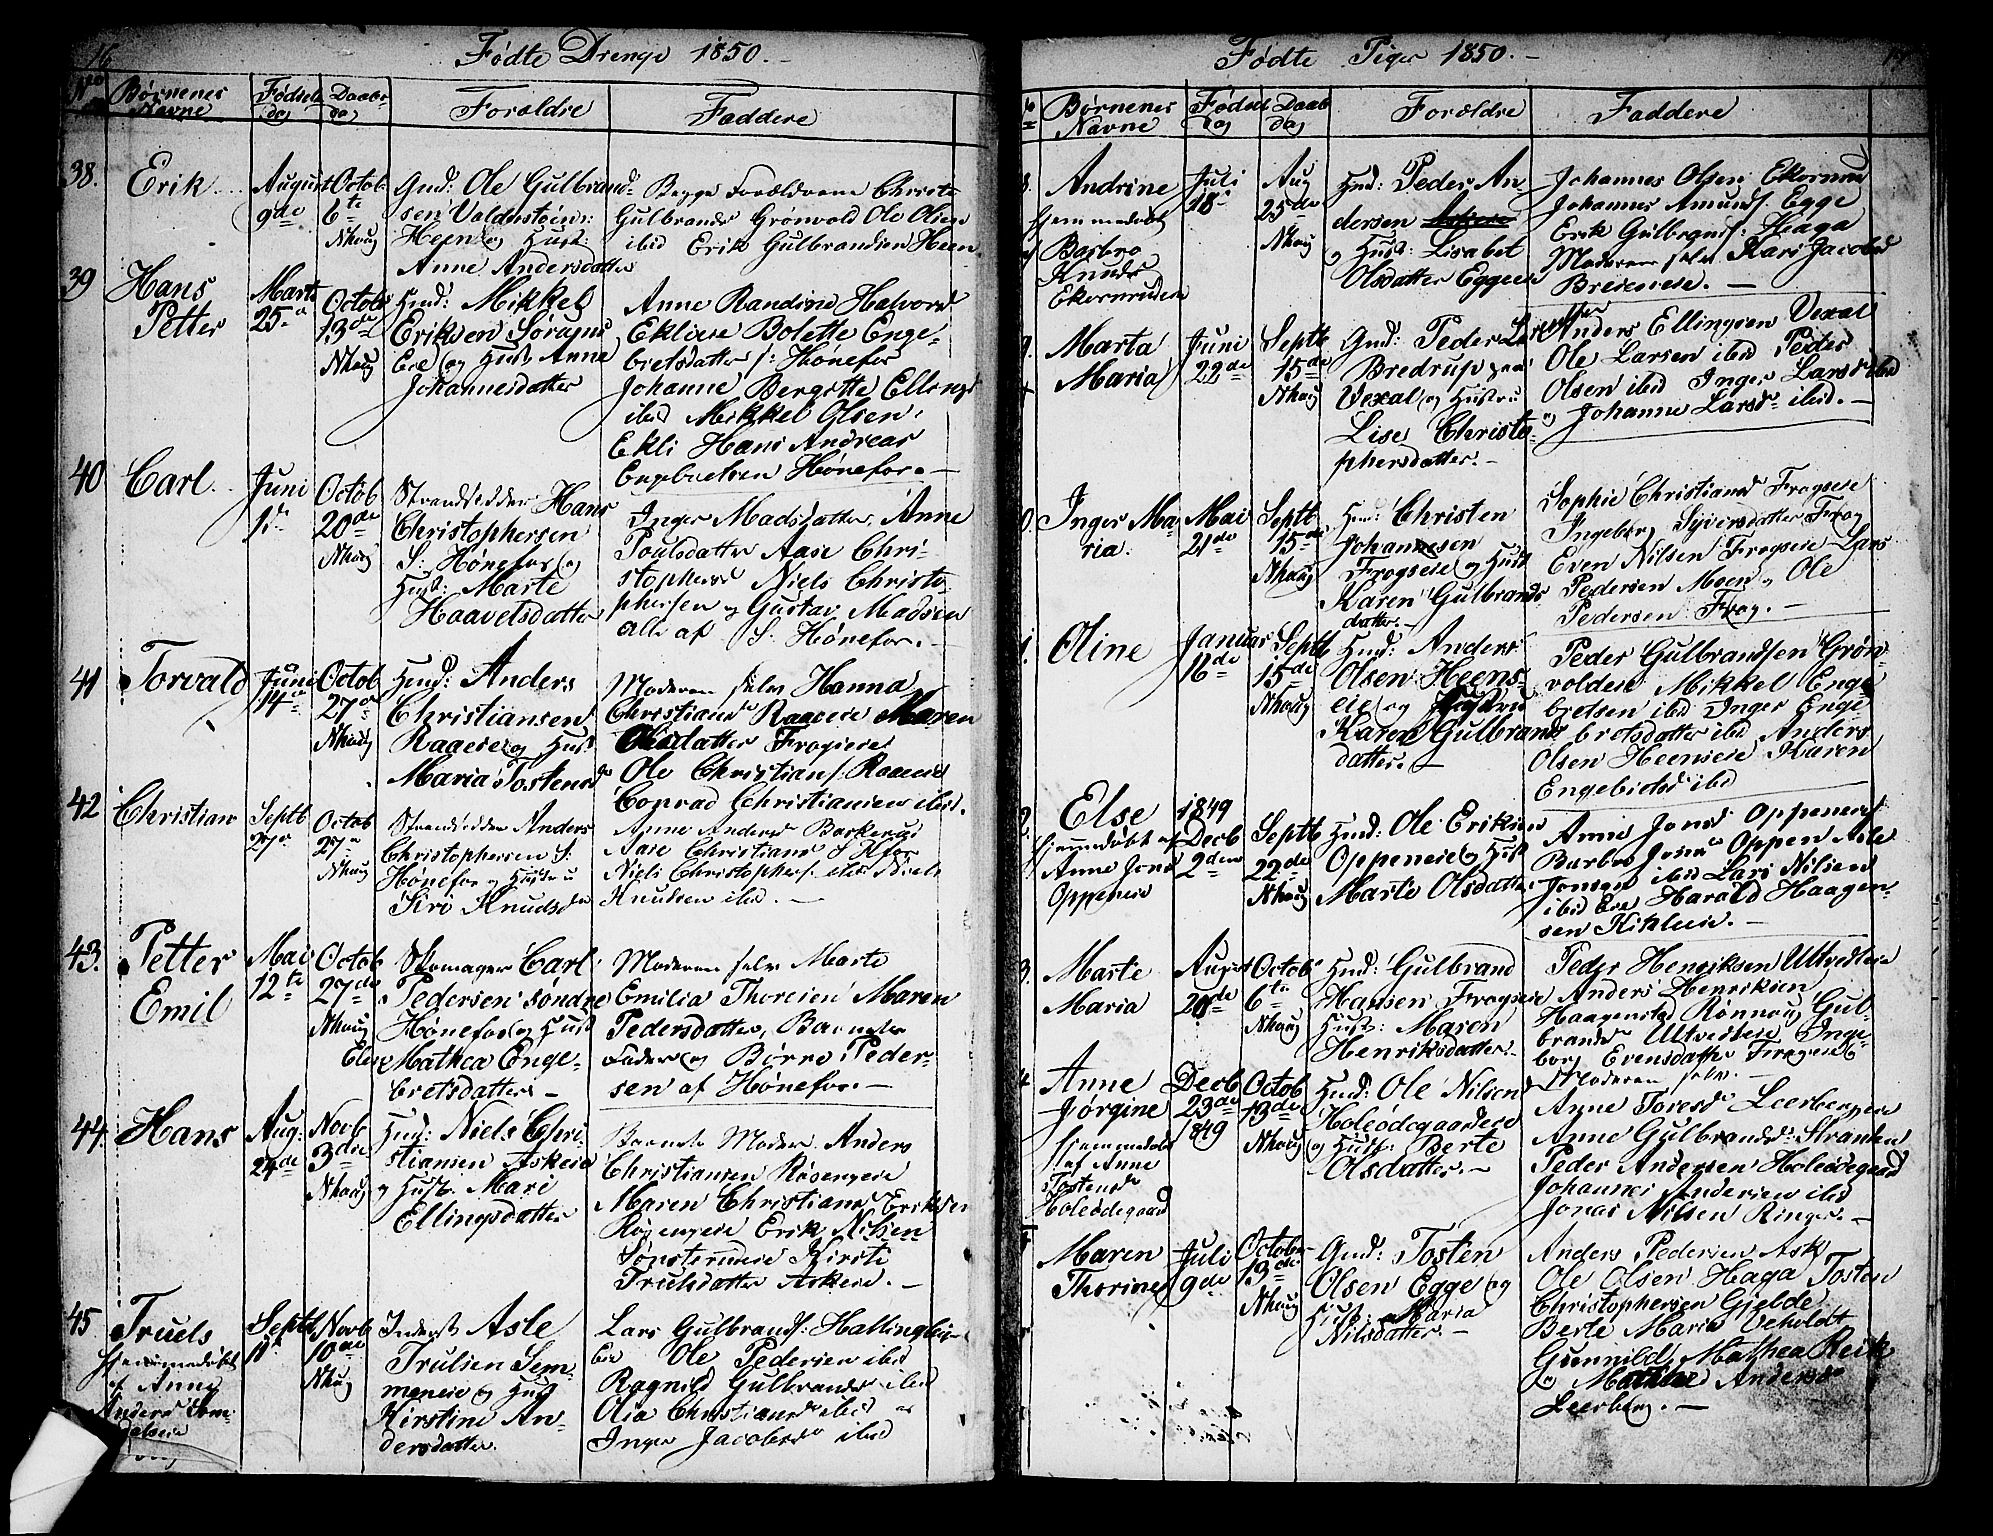 16
Fødte Drenge 1850.
No
Børnenes Navne
Fødsels dag
Daabs dag
Forældre
Faddere
38.
Erik
August 9de
Octob 6te
Nhoug
Gmd: Ole Gulbrand-
sen Valdenstein:
Heen og Hust:
Anne Andersdatter
Begge Forældrene Christi
Gulbrandsd Grønvold Ole Olsen
ibid Erik Gulbrandsen Heen
39
Hans
Petter
Marts
25
Octobr
13de
Nhoug
Huusd: Mikkel
Eriksen Søragns
Eie og Hust Anne
Johannesdatter
Anne Randine Halvord
Eklieie Bolette Enge-
bretsdatter S: Hønefos
Johanne Bergitte Ellings
ibid Mikkel Olsen
Ekli Hans Andreas
Engebretsen Hønefos.
40
Carl
Juni
1ste
Octob
20de
Nhoug
Strandsidder Hans
Christophersen
S: Hønefos og
Hust: Marte
Haavelsdatter
Inger Madsdatter, Anne
Poulsdatter Aase Chri-
stophersd Niels Christo-
phersen og Gustav Madsen
alle af S: Hønefos.
41
Torvald
Juni
14
Octob
27
Nhoug
Huusd: Anders
Christiansen
Raaeie og Hust
Maria Tostensd
Moderen selv Hanna
Christiansd Raaeeie Maren
Olsdatter Frogseie
Ole Christians: Raaeeie
Conrad Christiansen ibid.
42
Christian
Septb
27
Octob
27
Nhoug
Strandsidder Anders
Christophersen S:
Hønefos og Hustru
Siri Knudsd
Anne Andersd Barkerud
Aase Christiansd S Hfos
Niels Christophers: ibid Niels
Knudsen ibid.
43.
Petter
Emil
Mai
12te
Octob
27de
Nhoug
Skomager Carl
Pedersen søndre
Hønefos og Hust
Elen Mathea Enge-
bretsdatter
Moderen selv Marte
Emilia Thoresen Maren
Pedersdatter, Barnets
Fader og Børre Peder-
sen af Hønefos.
44.
Hans
Aug:
24de
Novb
3die
Nhoug
Huusd: Niels Chri-
stiansen Askeie
og Hust. Mari
Ellingsdatter
Barnets Moder Anders
Christiansen Rosengeie
Maren Christiansd Eriksen
Erik Nilsen
Kirsti
Truelsdatter Askeie.
45
Truels
hjemmedøbt
af Anne
Anders
Septb
11
Novb
10de
Nhoug
Inderst Asle
Trulsen Sem-
meneie og Hust
Kirstine An-
dersdatter.
Lars Gulbrands: Hallingbye
Eie Ole Pedersen ibid
Ragnild Gulbrandsd ibid
Olia Christiansd ibid og
Inger Jacobsd ibid
Fødte Piger 1850.
Børnenes Navne
Fødsels dag
Daabs dag
Forældre
Faddere
Andrine
hjemmedøbt
af Barbro
Knudsd
Ekornruden
Juli
18
Aug
25de
Nhoug
Huusd: Peder An-
dersen
og Hust: Lisabet
Olsdatter Eggeeie
Johannes Olsen Ekornrud
Johannes Amunds. Egge
Erik Gulbrands: Haga
Moderen selv Kari Jacobsd
Breieneie.
Marta
Maria
Juni
22de
Septb
15de
Nhoug
Gmd: Peder Larsen
Bredrup paa
Vexal og Hustru
Lise Christo-
phersdatter.
Anders Ellingsen Vexal
Ole Larsen ibid Peder
Olsen ibid Inger Larsd ibid
og Johanne Larsd ibid.
Inger Ma
ria.
Mai
21de
Septb
15de
Nhoug
Huusd: Christen
Johannesen
Frogseie og Hust
Karen Gulbrands
datter.
Sophie Christiansd Frogseie
Ingeborg Syversdatter Frog
Even Nilsen Frogseie Lars
Pedersen Moen og Ole
Pedersen Frog.
Oline
Januar
16de
Septb
15de
Nhoug
Huusd: Anders
Olsen Heens-
eie og Hustru
Karen Gulbrands
datter.
Peder Gulbrandsen Grøn-
volden Mikkel Enge
bretsen ibid Inger Enge
bretsdatter ibid Anders
Olsen Heenseie Karen
Engebretsd ibid
Else
hjemmedøbt af
Anne Jonsd
Oppeneie
1849
Decb
2den
Septb
22de
Nhoug
Huusd: Ole Eriksen
Oppeneie og Hust
Marte Olsdatter
Anne Jonsd Oppeneie
Barbro Jonsd Oppen Asle
Jonsen ibid Lars Nilsen
ibid Eie Harald Haagen-
sen
Marte
Maria
August
20de
Octob
6te
Nhoug
Huusd: Gulbrand
Hansen Frogseie
Hust: Maren
Henriksdatter.
Peder Henriksen Utvedteie
Anders Henriksen
Haagenstad Rønnoug Gul-
brandsd Utvedteie Inge-
borg Evensdatter Frogseie og
Moderen selv.
Anne
Jørgine
hjemmedøbt
af Anne
Tostensd
Holeødegaard
Decb
23de
1849
Octob
13de
Nhoug
Huusd: Ole Nilsen
Holeødegaardeie
og Hust: Berte
Olsdatter.
Anne Toresd Leerbergeie
Anne Gulbrandsd Stranden
Peder Andersen Holeødegaard
Johannes Andersen ibid
Jonas Nilsen Ringer.
Maren
Thorine
Juli
9de
October
13de
Nhoug
Gmd: Tosten
Olsen Egge og
Hust: Maria
Nilsdatter.
Anders Pedersen Ask
Ole Olsen Haga Tosten
Christophersen Gjelde
Berte Maria Veholdt
Gunnild Mathea Reik
og Andersd
Leerberg.